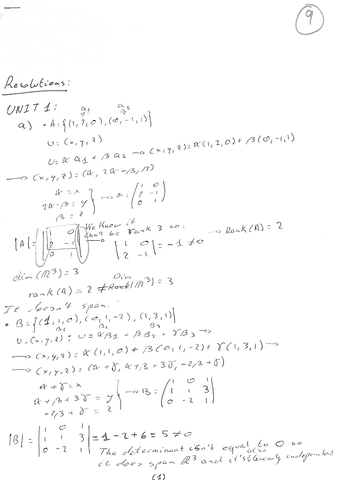 9
Resolutions:
UNIT 1: a₁ a₂
a) • A={(1,2,0),(0,-1,1)}
v=(x,y,z)
v=αa₁+βa₂ → (x,y,z)=α(1,2,0)+β(0,-1,1)
→ (x,y,z)=(α, 2α-β, β)
α=x
2α-β=y
β=z
A=(1 0
2 -1
0 1)
We know it
can't be rank 3 so:
|A|= 2 -1
0 1
|1 0
2 -1| = -1 ≠ 0 → Rank(A)=2
dim(ℝ³)=3
rank(A)=2 ≠ Dim(ℝ³)=3
It doesn't span.
• B={(1,1,0),(0,1,-2),(1,3,1)}
B₁ B₂ B₃
v=(x,y,z); v=αB₁+βB₂+γB₃ →
→ (x,y,z)=α(1,1,0)+β(0,1,-2)+γ(1,3,1) →
→ (x,y,z)=(α+γ, α+β+3γ, -2β+γ)
α+γ=x
α+β+3γ=y
-2β+γ=z
→ B=(1 0 1
1 1 3
0 -2 1)
|B|=|1 0 1
1 1 3
0 -2 1| = 1-2+6=5≠0
The determinant isn't equal to 0 so
it does span ℝ³ and it's also linearly independent
(1)